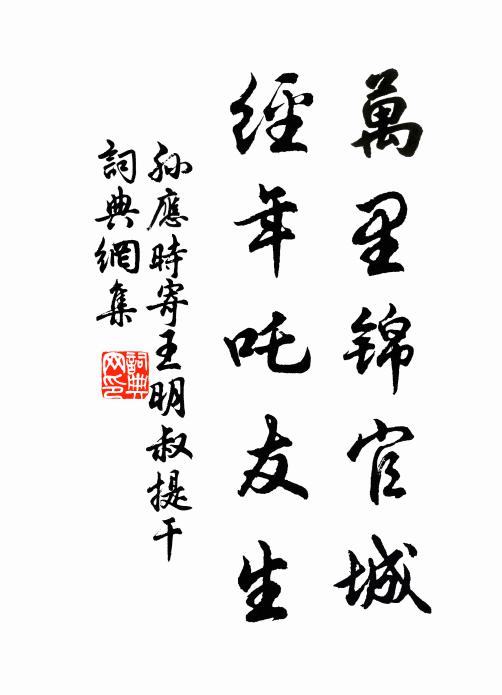 萬里锦官城
經年吒友生
孫應時寄王明叔提干
詞典網集
詞典网印